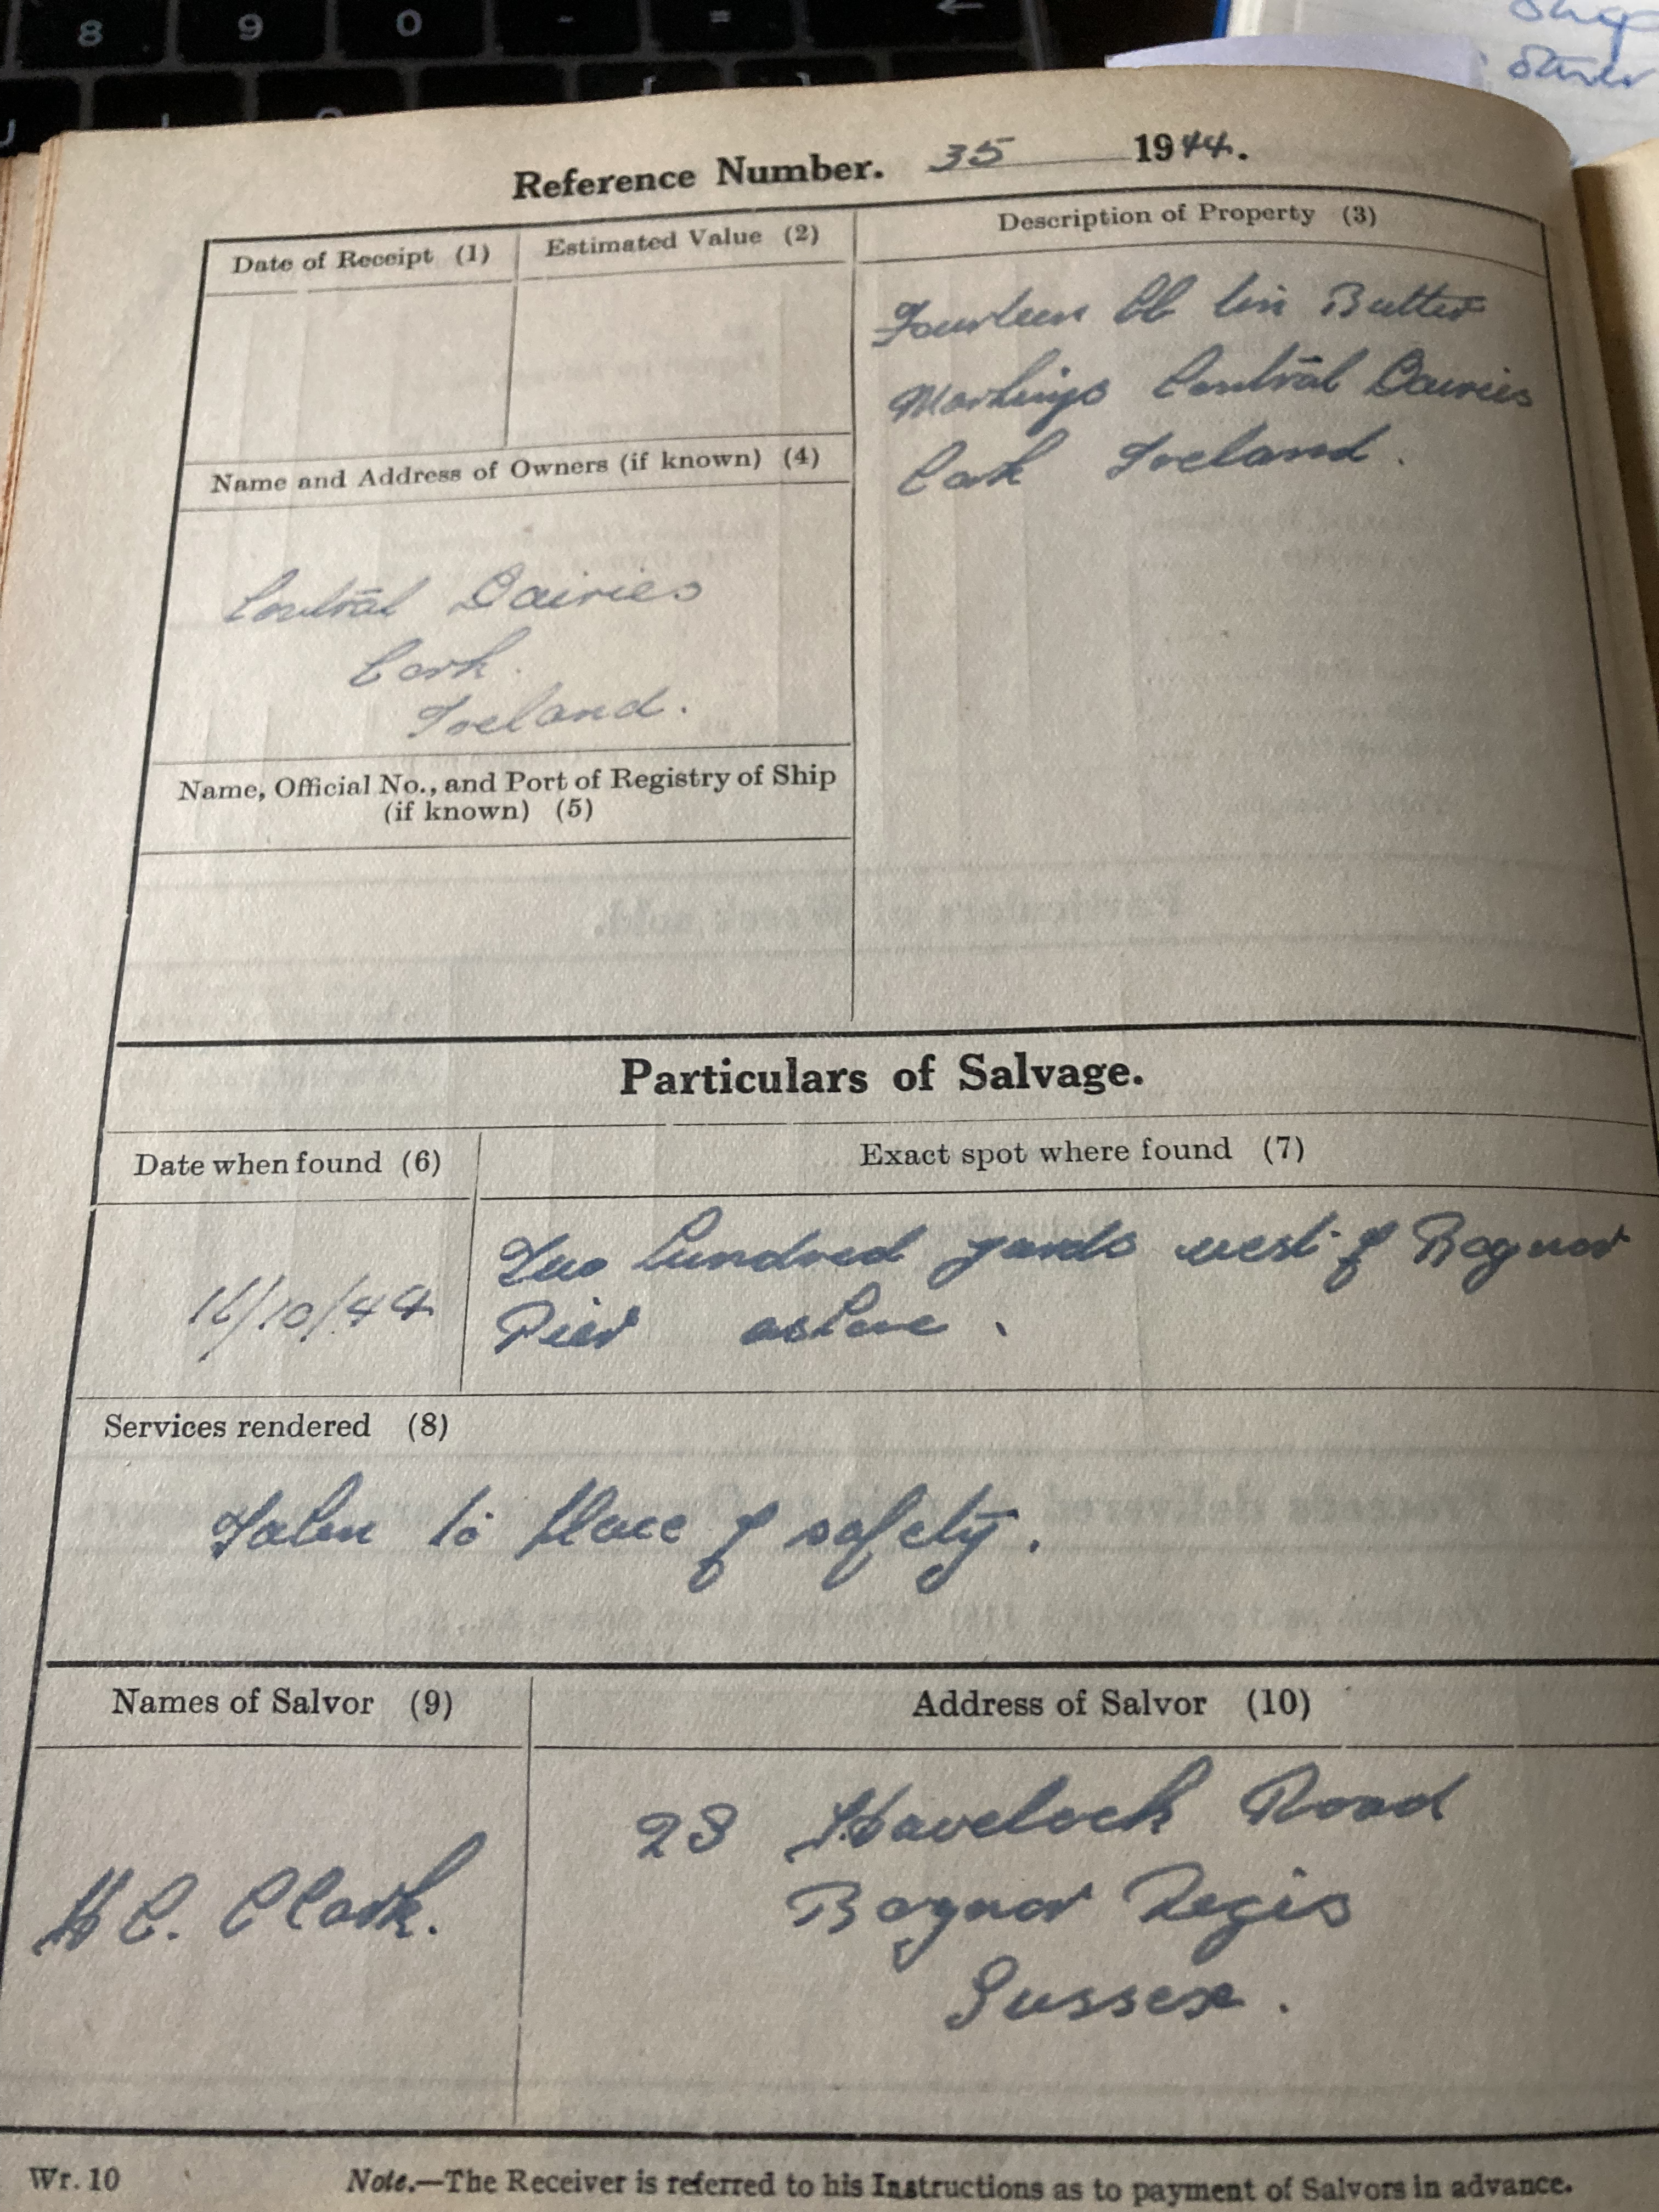 8 9 0 - =
Ship
Reference Number. 35 1944.
Date of Receipt (1)
Estimated Value (2)
Description of Property (3)
Fourteen lb tin Butter
Markings Central Dairies
Cork Ireland.
Name and Address of Owners (if known) (4)
Central Dairies
Cork.
Ireland.
Name, Official No., and Port of Registry of Ship
(if known) (5)
Particulars of Wreck sold.
Particulars of Salvage.
Date when found (6)
Exact spot where found (7)
16/10/44
Two hundred yards west of Bognor
Pier ashore.
Services rendered (8)
Taken to place of safety.
Names of Salvor (9)
Address of Salvor (10)
H C. Clark.
23 Havelock Road
Bognor Regis
Sussex.
Wr. 10
Note.—The Receiver is referred to his Instructions as to payment of Salvors in advance.